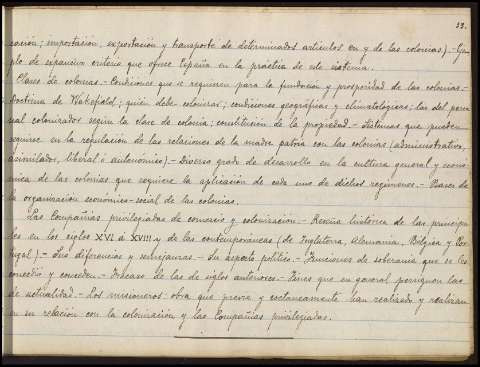 33.
ración; importación, exportación y transporte de determinados artículos en y de las colonias). - Ejem-
plo de expansivo criterio que ofrece España en la práctica de este sistema.
Clases de colonias. - Condiciones que se requieren para la fundación y prosperidad de las colonias. -
Doctrina de Wakefield; quién debe colonizar; condiciones geográficas y climatológicas; las del perso-
nal colonizador según la clase de colonia; constitución de la propiedad. - Sistemas que pueden
seguirse en la regulación de las relaciones de la madre patria con las colonias (administrativo,
asimilador, liberal ó autonómico). - Diverso grado de desarrollo en la cultura general y econó-
mica de las colonias que requiere la aplicación de cada uno de dichos regímenes. - Bases de
la organización económico-social de las colonias.
Las Compañías privilegiadas de comercio y colonización. - Reseña histórica de las principa-
les en los siglos XVI á XVIII y de las contemporáneas (de Inglaterra, Alemania, Bélgica y Por-
tugal). - Sus diferencias y semejanzas. - Su aspecto político. - Funciones de soberanía que se les
concedió y conceden. - Fracaso de las de siglos anteriores. - Fines que en general persiguen las
de actualidad. - Los misioneros: obra que previa y coetáneamente han realizado y realizan
en su relación con la colonización y las Compañías privilegiadas.